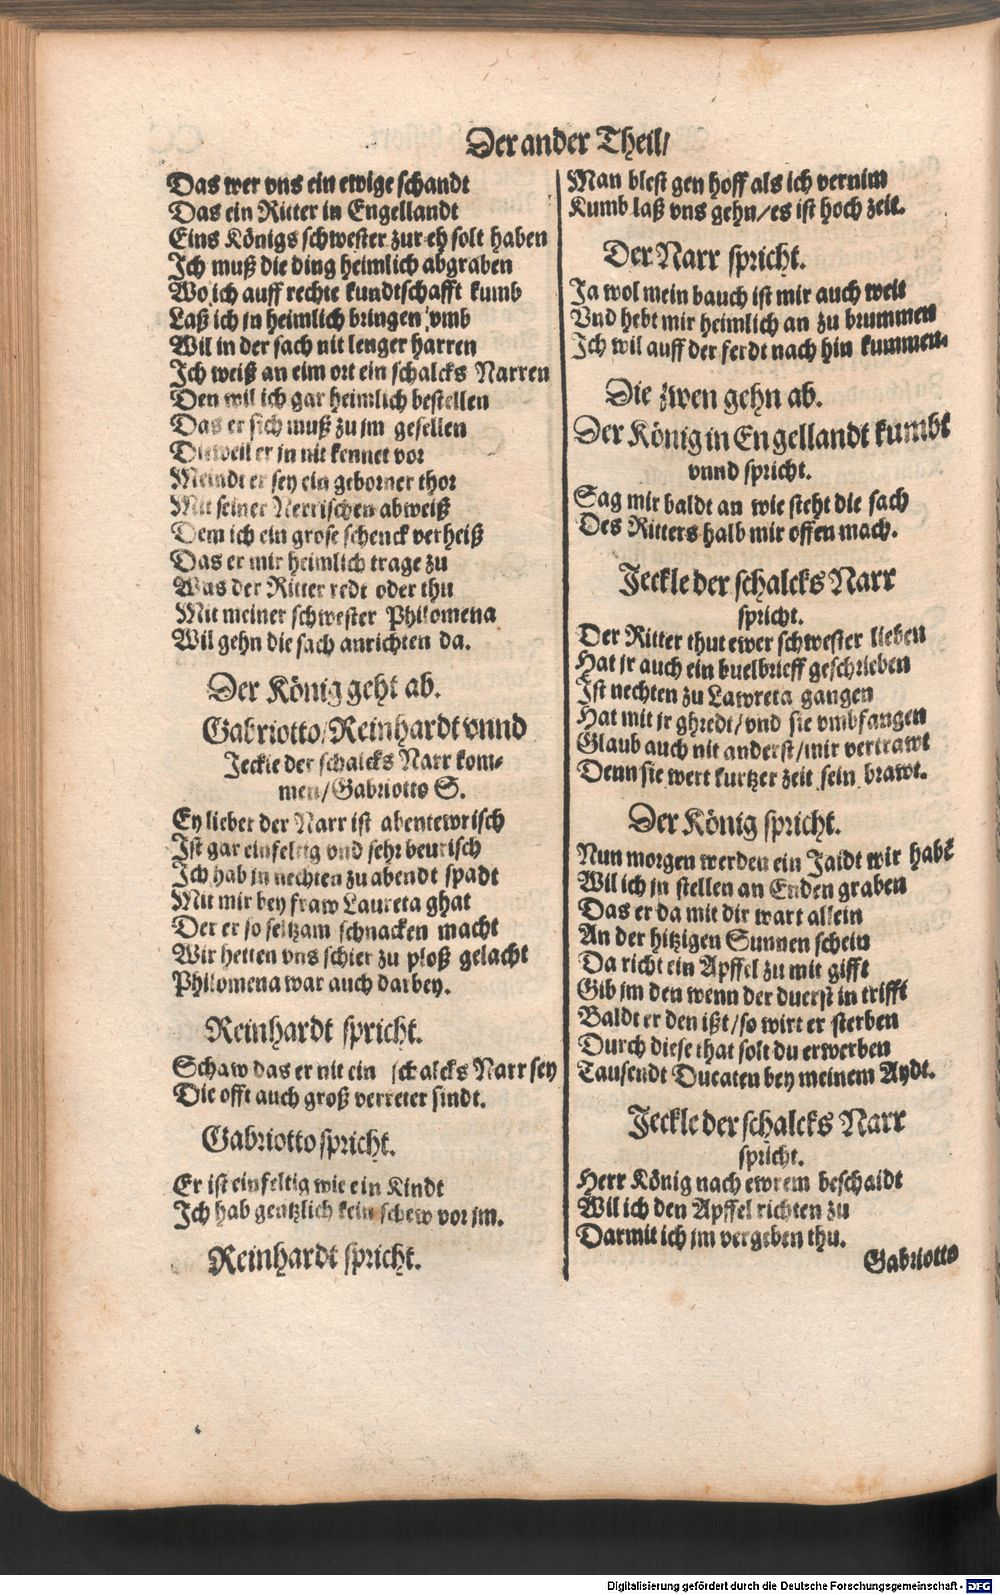 Der ander Theil/
Das wer vns ein ewige schandt
Das ein Ritter in Engellandt
Eins Königs schwester zur eh solt haben
Ich muß die ding heimlich abgraben
Wo ich auff rechte kundtschafft kumb
Laß ich jn heimlich bringen vmb
Wil in der sach nit lenger harren
Ich weiß an eim ort ein schalcks Narren
Den wil ich gar heimlich bestellen
Das er sich muß zu jm gesellen
Dieweil er jn nit kennet vor
Meindt er sey ein geborner thor
Mit seiner Nerrischen abweiß
Dem ich ein grose schenck verheiß
Das er mir heimlich trage zu
Was der Ritter redt oder thu
Mit meiner schwester Philomena
Wil gehn die sach anrichten da.
Der König geht ab.
Gabriotto/Reinhardt vnnd
Jeckle der schalcks Narr kom-
men/Gabriotto S.
Ey lieber der Narr ist abentewrisch
Ist gar einfeltig vnd sehr beurisch
Ich hab jn nechten zu abendt spadt
Mit mir bey fraw Laureta ghat
Der er so seltzam schnacken macht
Wir hetten vns schier zu ploß gelacht
Philomena war auch darbey.
Reinhardt spricht.
Schaw das er nit ein schalcks Narr sey
Die offt auch groß verreter sindt.
Gabriotto spricht.
Er ist einfeltig wie ein Kindt
Ich hab gentzlich kein schew vor jm.
Reinhardt spricht.
Man blest gen hoff als ich vernim
Kumb laß vns gehn/es ist hoch zeit.
Der Narr spricht.
Ja wol mein bauch ist mir auch weit
Vnd hebt mir heimlich an zu brummen
Ich wil auff der ferdt nach hin kummen.
Die zwen gehn ab.
Der König in Engellandt kumbt
vnnd spricht.
Sag mir baldt an wie steht die sach
Des Ritters halb mir offen mach.
Jeckle der schalcks Narr
spricht.
Der Ritter thut ewer schwester lieben
Hat jr auch ein buelbrieff geschrieben
Ist nechten zu Lawreta gangen
Hat mit jr ghredt/vnd sie vmbfangen
Glaub auch nit anderst/mir vertrawt
Denn sie wert kurtzer zeit sein brawt.
Der König spricht.
Nun morgen werden ein Jaidt wir habē
Wil ich jn stellen an Enden graben
Das er da mit dir wart allein
An der hitzigen Sunnen schein
Da richt ein Apffel zu mit gifft
Gib jm den wenn der duerst in trifft
Baldt er den ißt/so wirt er sterben
Durch diese that solt du erwerben
Tausendt Ducaten bey meinem Aydt.
Jeckle der schalcks Narr
spricht.
Herr König nach ewrem beschaidt
Wil ich den Apffel richten zu
Darmit ich jm vergeben thu.
Gabriotto
Digitalisierung gefördert durch die Deutsche Forschungsgemeinschaft - DFG